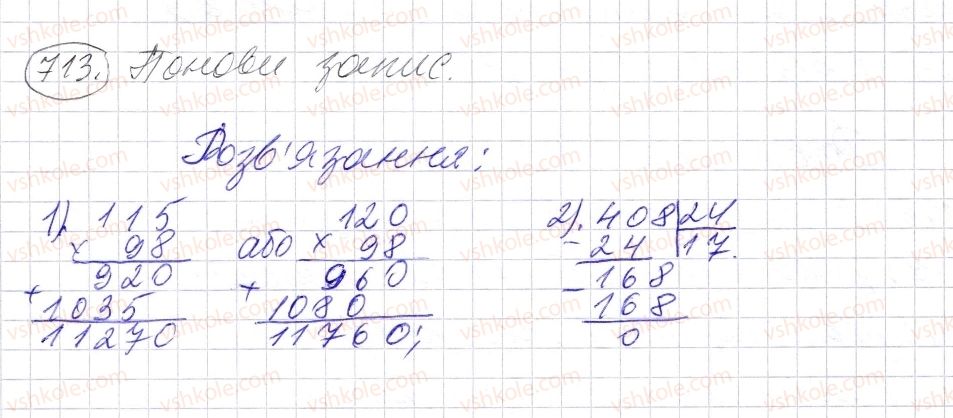 713. Понови запис.
Розв'язання:
1). 115 або 120 2). 408 24
× 98 × 98 - 24 17.
920 960 - 168
+ 1035 + 1080 168
11270 11760; 0